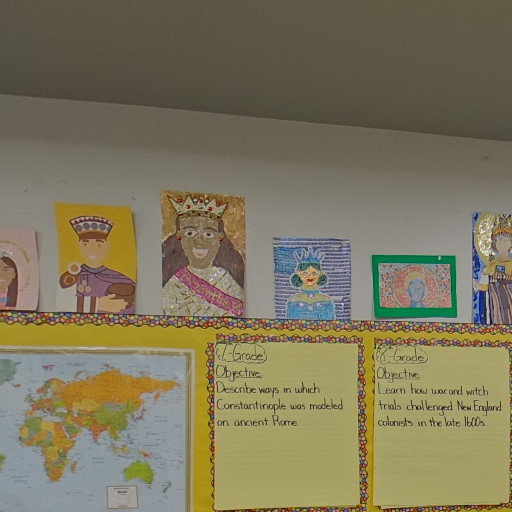 7-Grade
Objective
Describe ways in which
Constantinople was modeled
on ancient Rome
8-Grade
Objective
Learn how war and witch
trials challenged New England
colonists in the late 1600s.